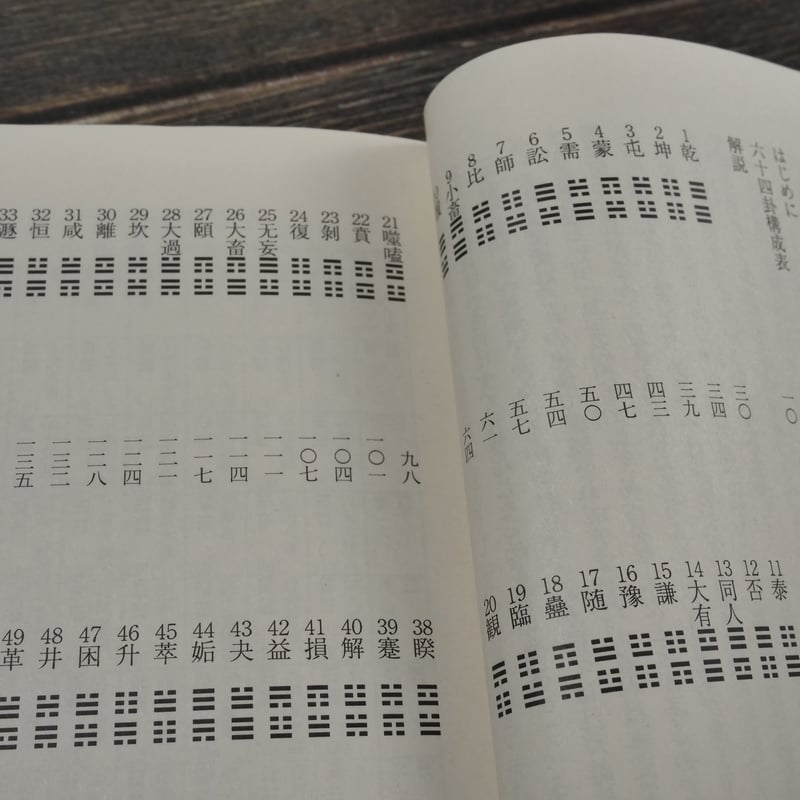 はじめに
六十四卦構成表
解説 一〇
1乾 ䷀ 三〇
2坤 ䷁ 三四
3屯 ䷂ 三九
4蒙 ䷃ 四三
5需 ䷄ 四七
6訟 ䷅ 五〇
7師 ䷆ 五四
8比 ䷇ 五七
9小畜 ䷈ 六一
六四
11泰 ䷊
12否 ䷋
13同人 ䷌
14大有 ䷍
15謙 ䷎
16豫 ䷏
17随 ䷐
18蠱 ䷑
19臨 ䷒
20観 ䷓
21噬嗑 ䷔ 九八
22賁 ䷕ 一〇一
23剝 ䷖ 一〇四
24復 ䷗ 一〇七
25无妄 ䷘ 一一一
26大畜 ䷙ 一一四
27頤 ䷚ 一一七
28大過 ䷛ 一二一
29坎 ䷜ 一二四
30離 ䷝ 一二八
31咸 ䷞ 一三二
32恒 ䷟ 一三五
33
38睽 ䷥
39蹇 ䷦
40解 ䷧
41損 ䷨
42益 ䷩
43夬 ䷪
44姤 ䷫
45萃 ䷬
46升 ䷭
47困 ䷮
48井 ䷯
49革 ䷰